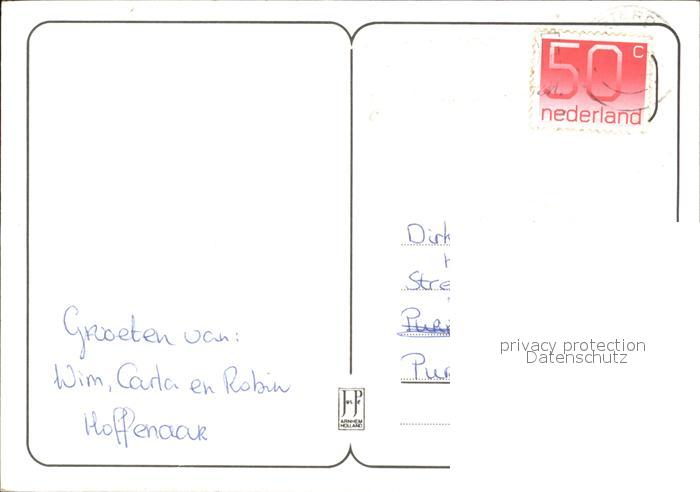 50 c
nederland
Groeten van:
Wim, Carla en Robin
Hoffenaar
Jos-Pe
ARNHEM
HOLLAND
Dirk
Stre
Pur
privacy protection
Datenschutz